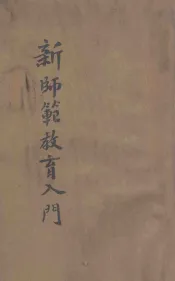 新師範教育入門